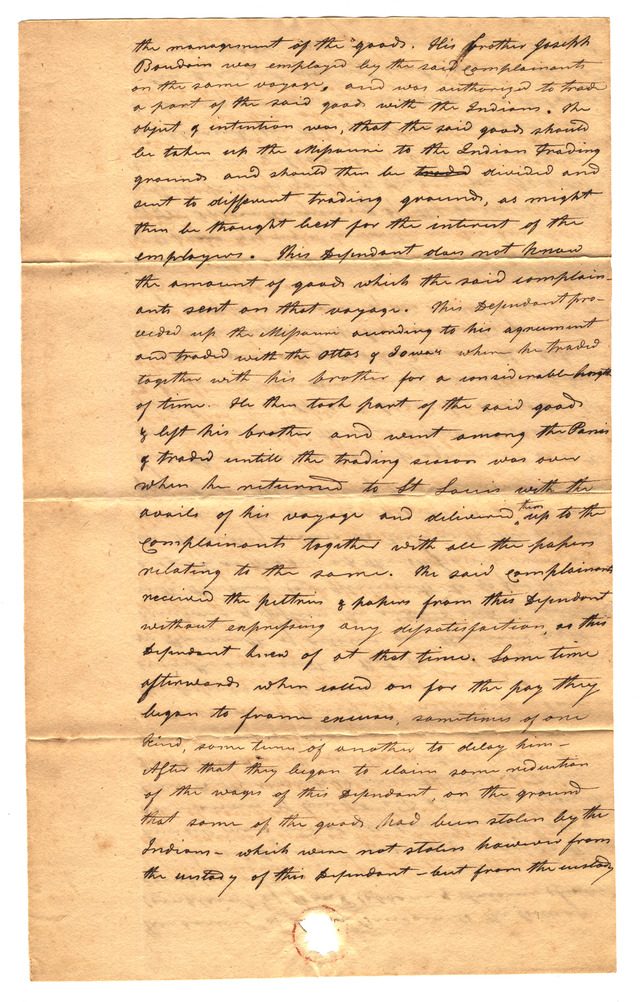 the management of the goods. His brother Joseph
Baudoin was employed by the said complainants
on the same voyage, and was authorized to trade
a part of the said goods with the Indians. The
object & intention was, that the said goods should
be taken up the Missouri to the Indian trading
grounds and should then be traded divided and
sent to different trading grounds, as might
then be thought best for the interest of the
employers. This Defendant does not know
the amount of goods which the said complain-
ants sent on that voyage. This Defendant pro-
ceded up the Missouri according to his agreement
and traded with the Ottos & Iowas where he traded
together with his brother for a considerable length
of time. He then took part of the said goods
& left his brother and went among the Panis
& traded untill the trading season was over
when he returned to St Louis with the
avails of his voyage and delivered them up to the
complainants together with all the papers
relating to the same. The said complainants
received the peltries & papers from this Defendant
without expressing any dissatisfaction, as this
Defendant knew of at that time. Some time
afterwards when called on for the pay they
began to frame excuses, sometimes of one
kind, some times of another to delay him –
After that they began to claim some reduction
of the wages of this Defendant, on the ground
that some of the goods had been stolen by the
Indians – which were not stolen however from
the custody of this Defendant – but from the custody